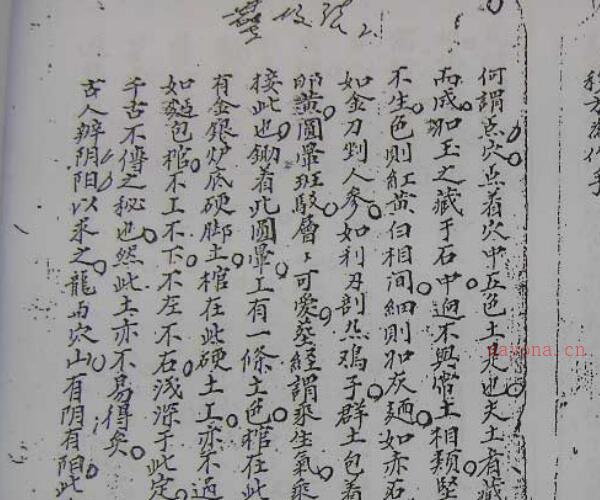 何謂点穴点着穴中五色土是也夫土者藏
而成如玉之藏于石中迥不與常土相類堅
不生色則紅黄白相间細則如灰麺如赤石
如金刀剉人參如利刀剖鸡子群土包着
黄圓暈班駁層々可愛葬經謂乘生氣乘
接此也鋤着此圓暈工有一條土色棺在此
有金銀炉底硬脚土棺在此硬土工亦不過
如麺包棺不工不下不左不右浅深于此定
千古不傳之秘也然此土亦不易得矣
古人辨阴阳以求之龍与穴山有阴有阳此
nayona.cn